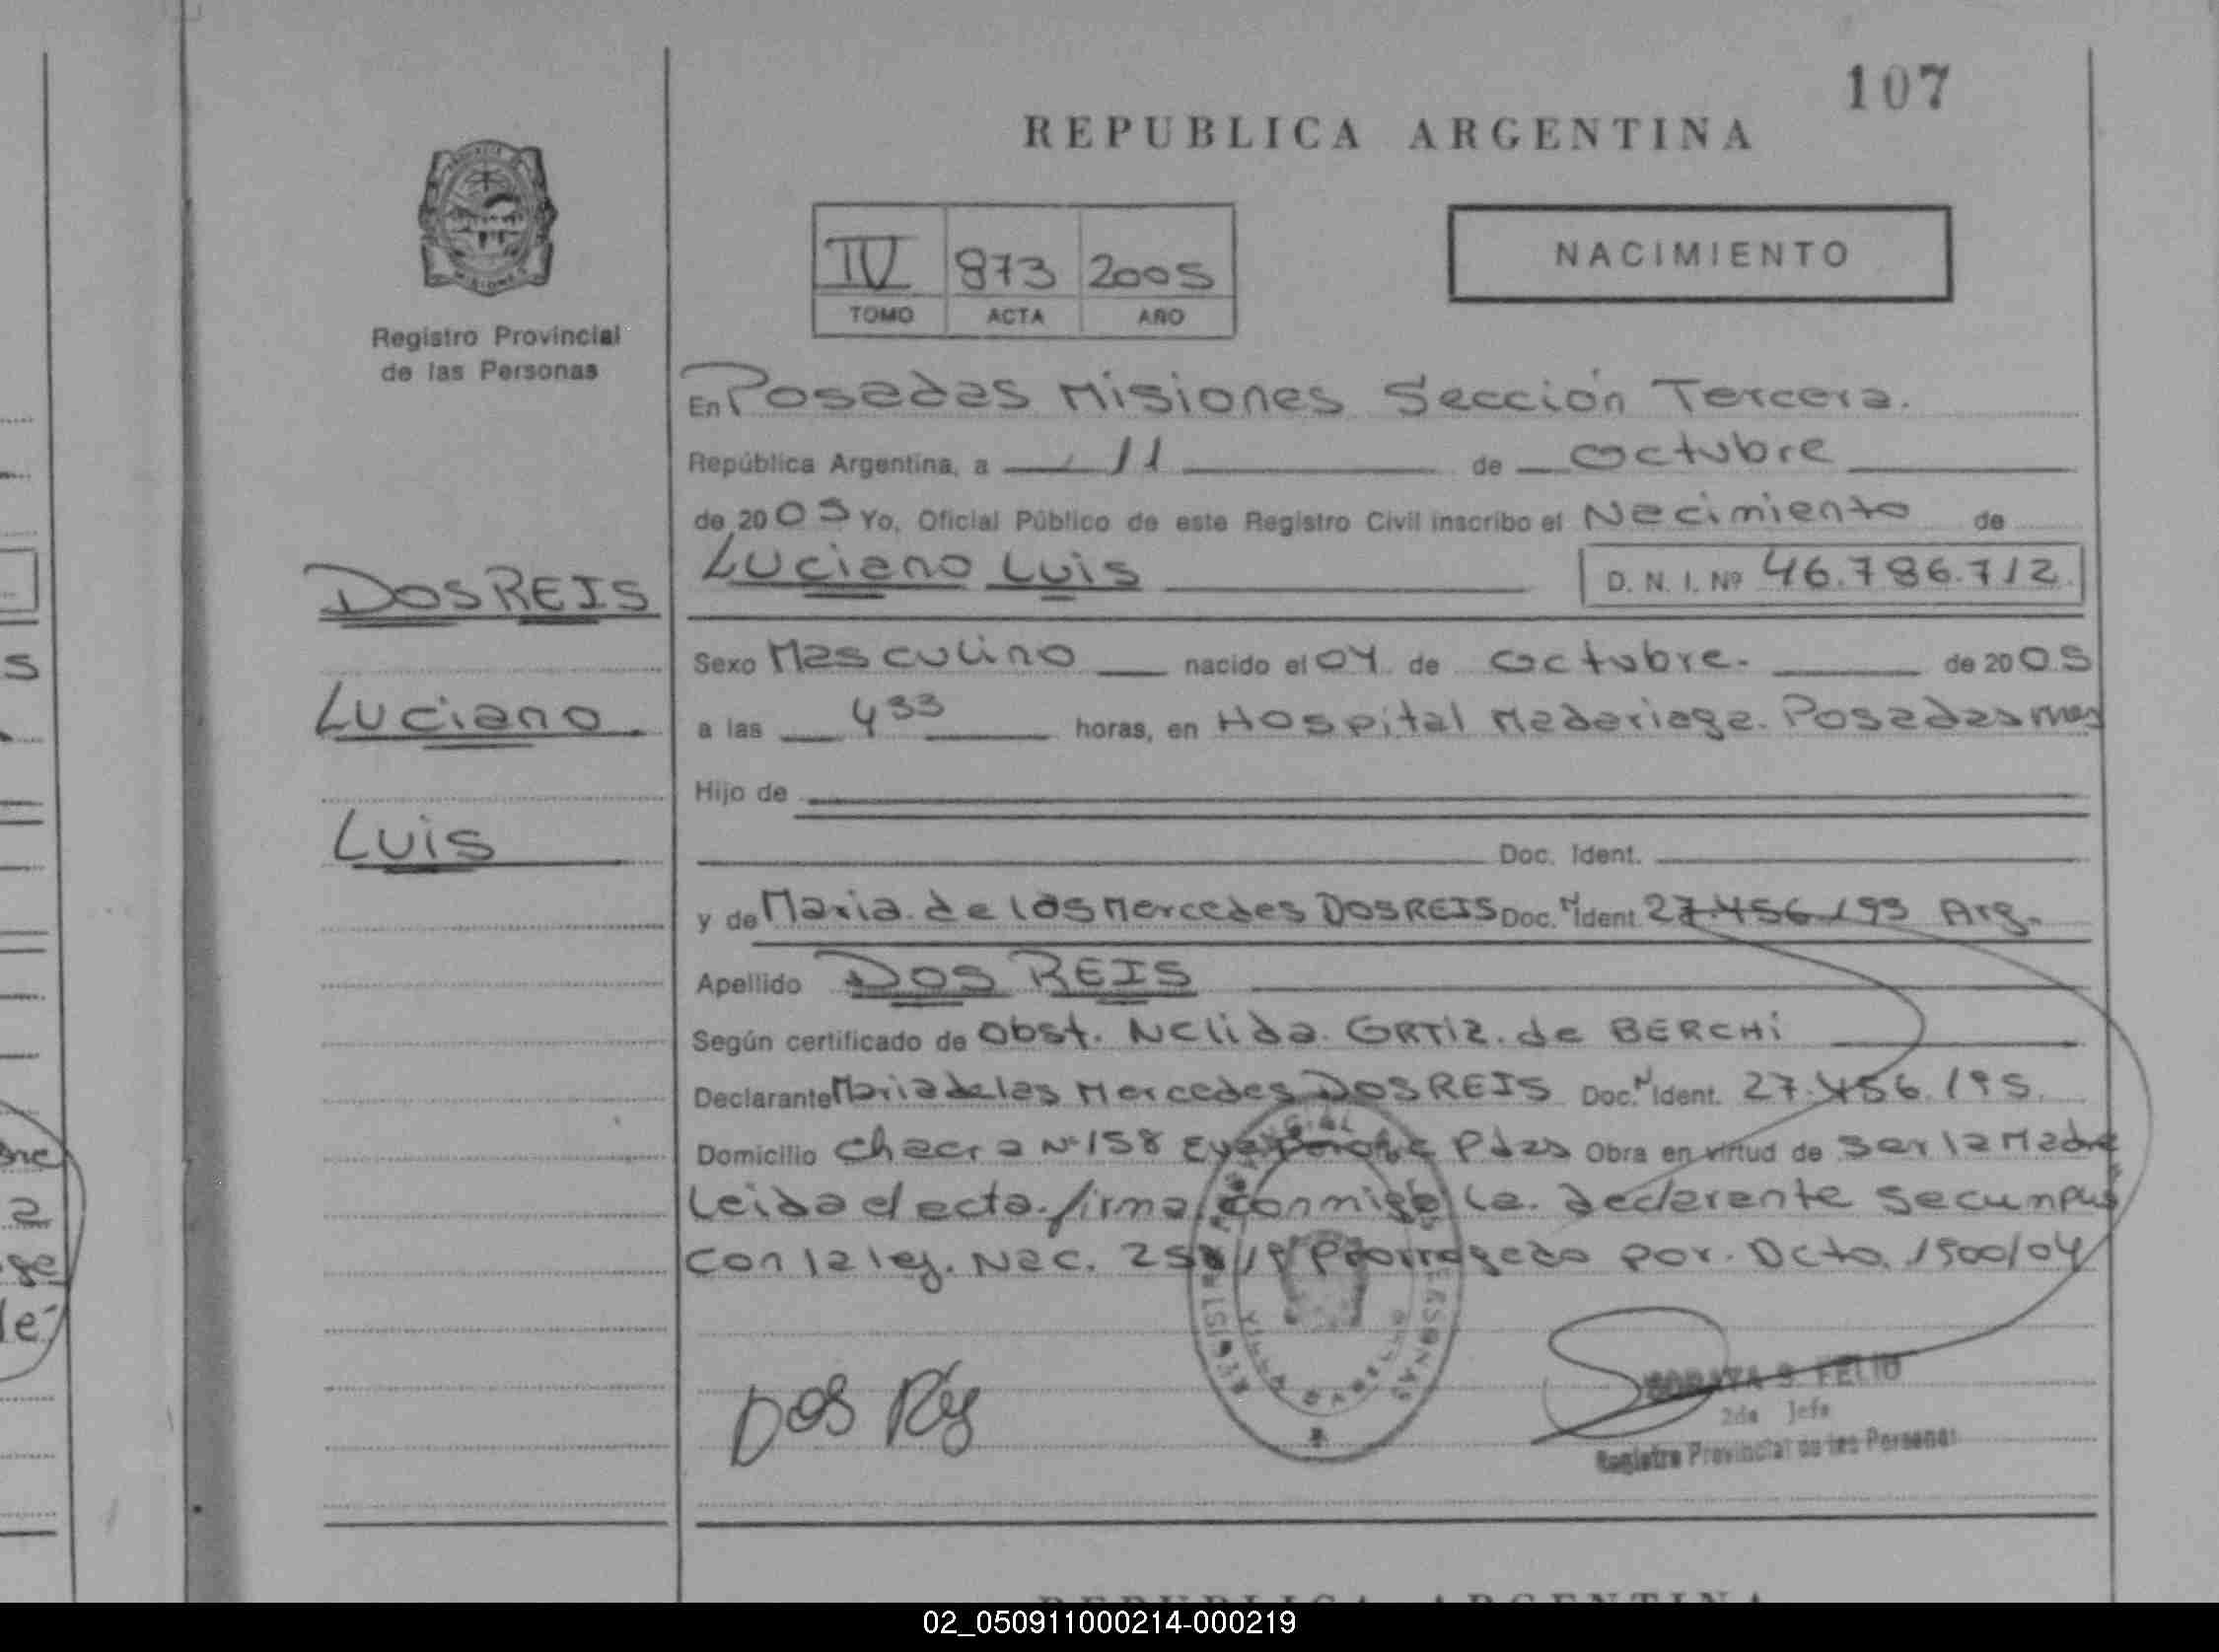 107
REPUBLICA ARGENTINA
IV 873 2005
TOMO ACTA AÑO
NACIMIENTO
Registro Provincial
de las Personas
En Posadas Misiones Sección Tercera.
República Argentina, a 11 de Octubre
de 2005 Yo, Oficial Público de este Registro Civil inscribo el Nacimiento de
Luciano Luis D. N. I. Nº 46.786.712
DOS REIS
Luciano
Luis
Sexo Masculino nacido el 04 de octubre. de 2005
a las 4 33 horas, en Hospital Madariaga. Posadas Mnes
Hijo de
Doc. Ident.
y de Maria de las Mercedes DOS REIS Doc. N Ident. 27.456.195 Arg.
Apellido DOS REIS
Según certificado de Obst. Nelida ORTIZ de BERCHI
Declarante Maria de las Mercedes DOS REIS Doc. N Ident. 27.456.195.
Domicilio Chacra Nº 158 Pdas Obra en virtud de ser la Madre
Leida el acta firma conmigo la declarante se cunplió
con la ley. Nac. Prorrogado por Dcto. 1500/04
Dos Reis
S. FELIU
2da Jefa
Registro Provincial de las Personas
REPUBLICA ARGENTINA
02_050911000214-000219